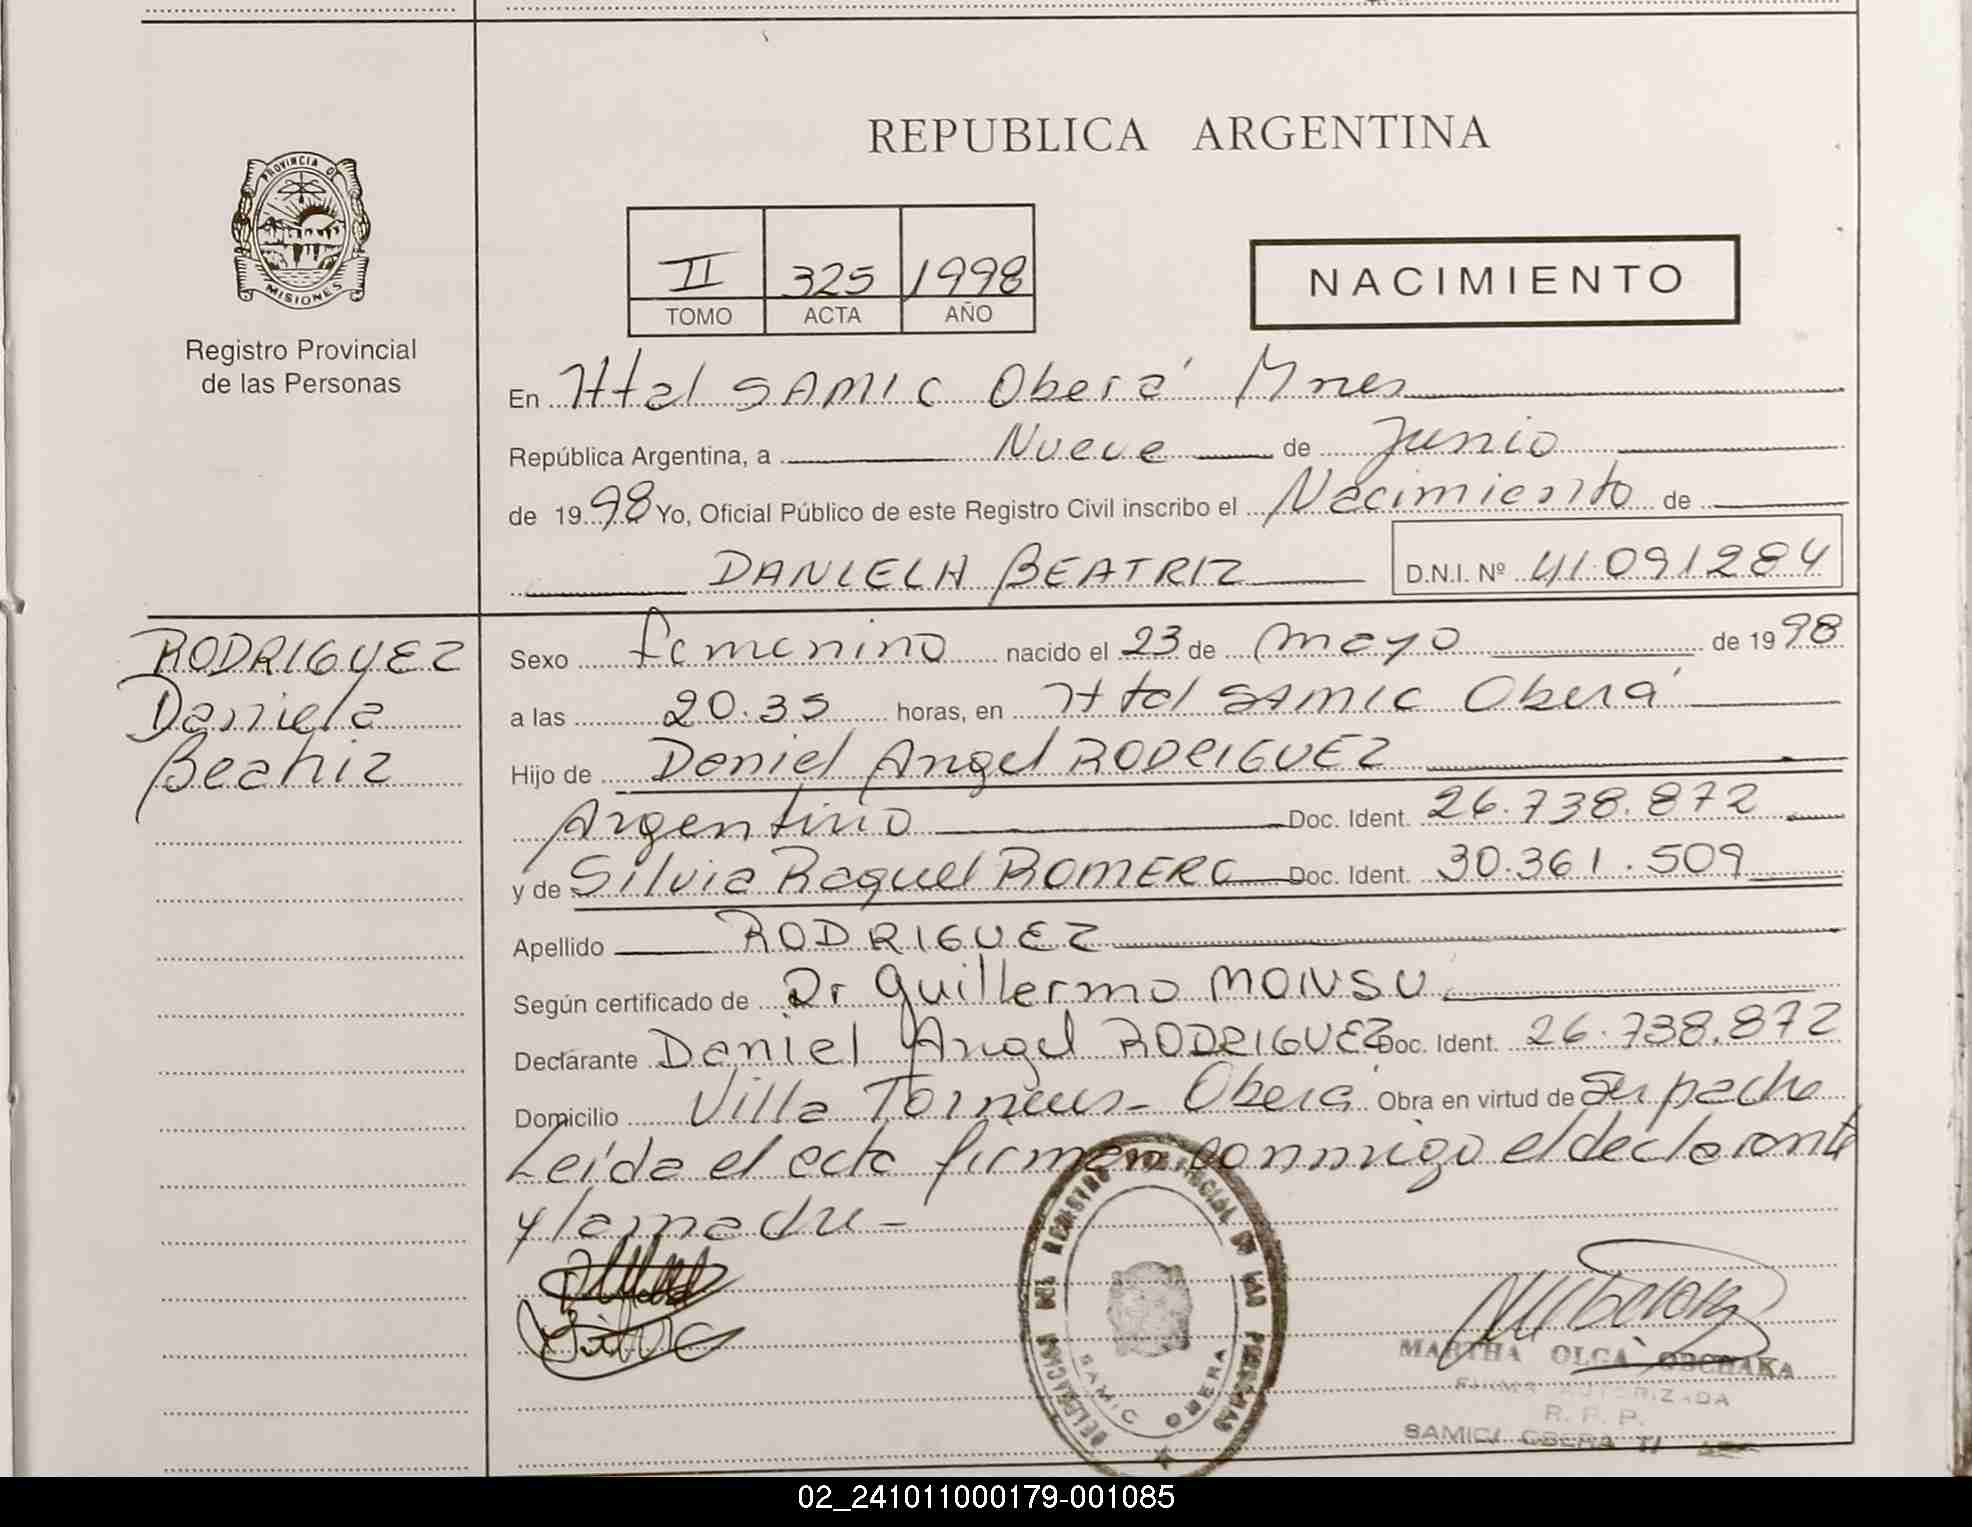 REPUBLICA ARGENTINA
PROVINCIA DE
MISIONES
Registro Provincial
de las Personas
II 325 1998
TOMO ACTA AÑO
NACIMIENTO
En Htal SAMIC Oberá Mnes
República Argentina, a Nueve de Junio
de 1998 Yo, Oficial Público de este Registro Civil inscribo el Nacimiento de
DANIELA BEATRIZ D.N.I. Nº 41.091284
RODRIGUEZ
Daniela
Beatriz
Sexo femenino nacido el 23 de mayo de 1998
a las 20.35 horas, en Htal SAMIC Oberá
Hijo de Daniel Angel RODRIGUEZ
Argentino Doc. Ident. 26.738.872
y de Silvia Raquel ROMERO Doc. Ident. 30.361.509
Apellido RODRIGUEZ
Según certificado de Dr Guillermo MONSU
Declarante Daniel Angel RODRIGUEZ Doc. Ident. 26.738.872
Domicilio Villa Oberá Obra en virtud de
Leída el acta firman conmigo el declarante
y la madre -
DELEGACION DEL REGISTRO PROVINCIAL DE LAS PERSONAS
SAMIC OBERA
MARTHA OLGA
FIRMA AUTORIZADA
R. P. P.
SAMIC OBERA
02_241011000179-001085